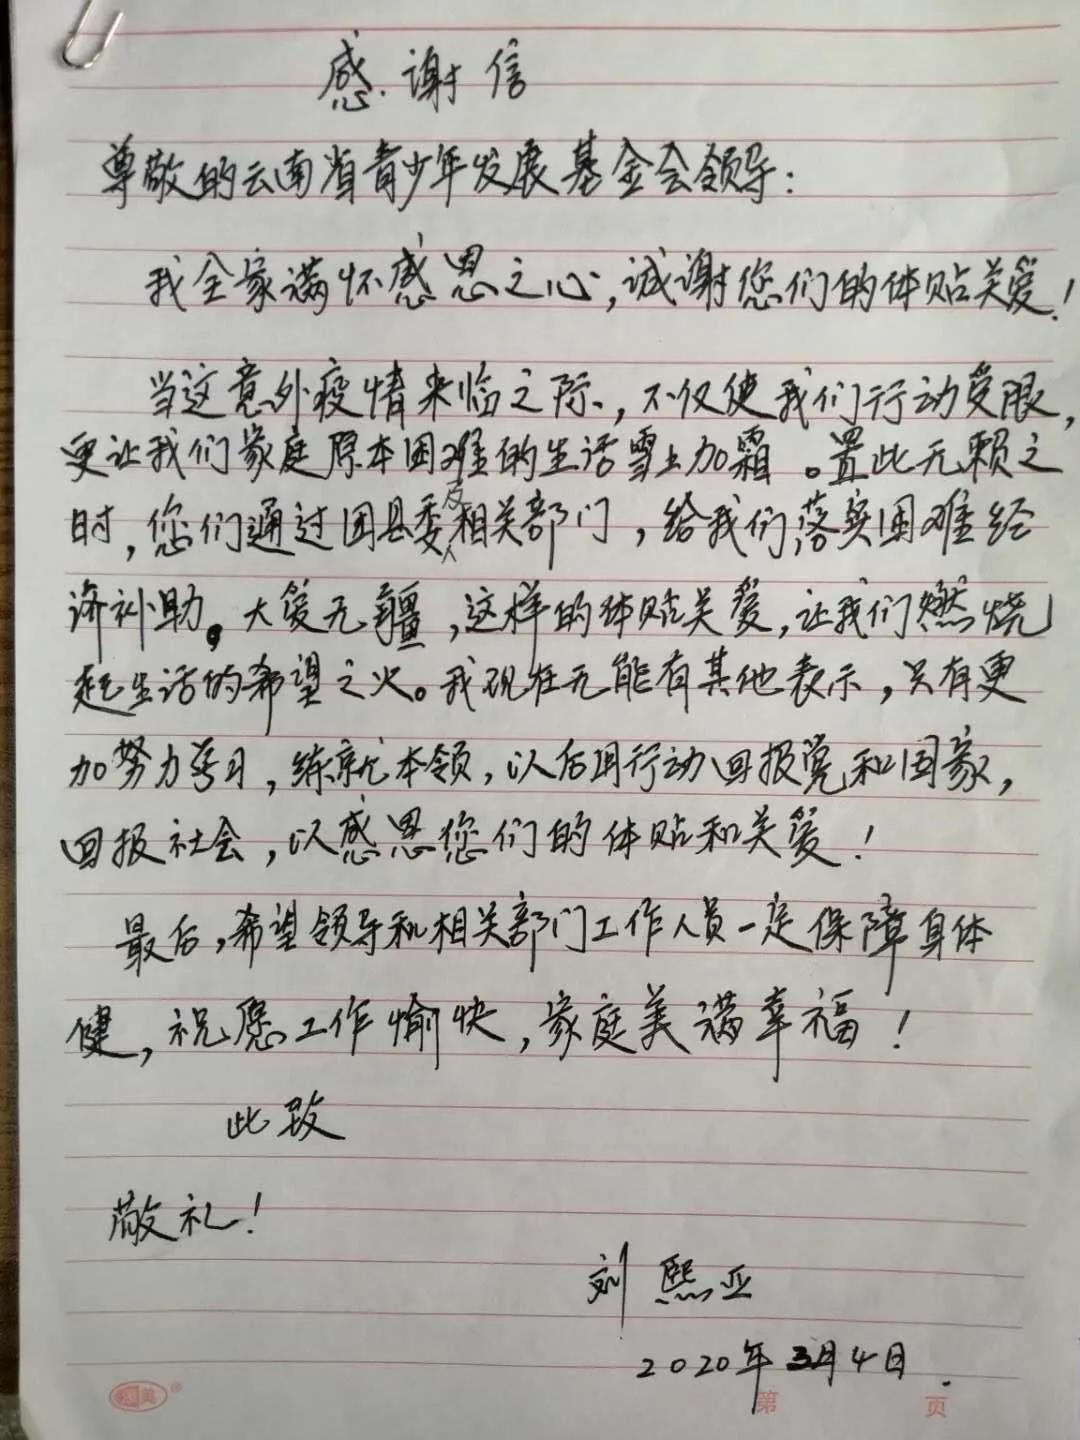 感谢信
尊敬的云南省青少年发展基金会领导：
我全家满怀感恩之心，诚谢您们的体贴关爱！
当这意外疫情来临之际，不仅使我们行动受限，
更让我们家庭原本困难的生活雪上加霜。置此无赖之
时，您们通过团县委及相关部门，给我们落实困难经
济补助。大爱无疆，这样的体贴关爱，让我们燃烧
起生活的希望之火。我现在无能有其他表示，只有更
加努力学习，练就本领，以后用行动回报党和国家，
回报社会，以感恩您们的体贴和关爱！
最后，希望领导和相关部门工作人员一定保障身体
健，祝愿工作愉快，家庭美满幸福！
此致
敬礼！
刘熙亚
2020年3月4日.
第 页